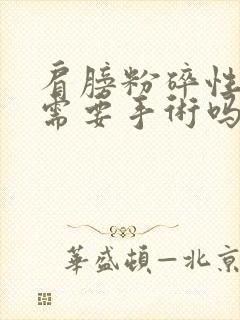 肩膀粉碎性
需要手術吗
華盛頓—北京